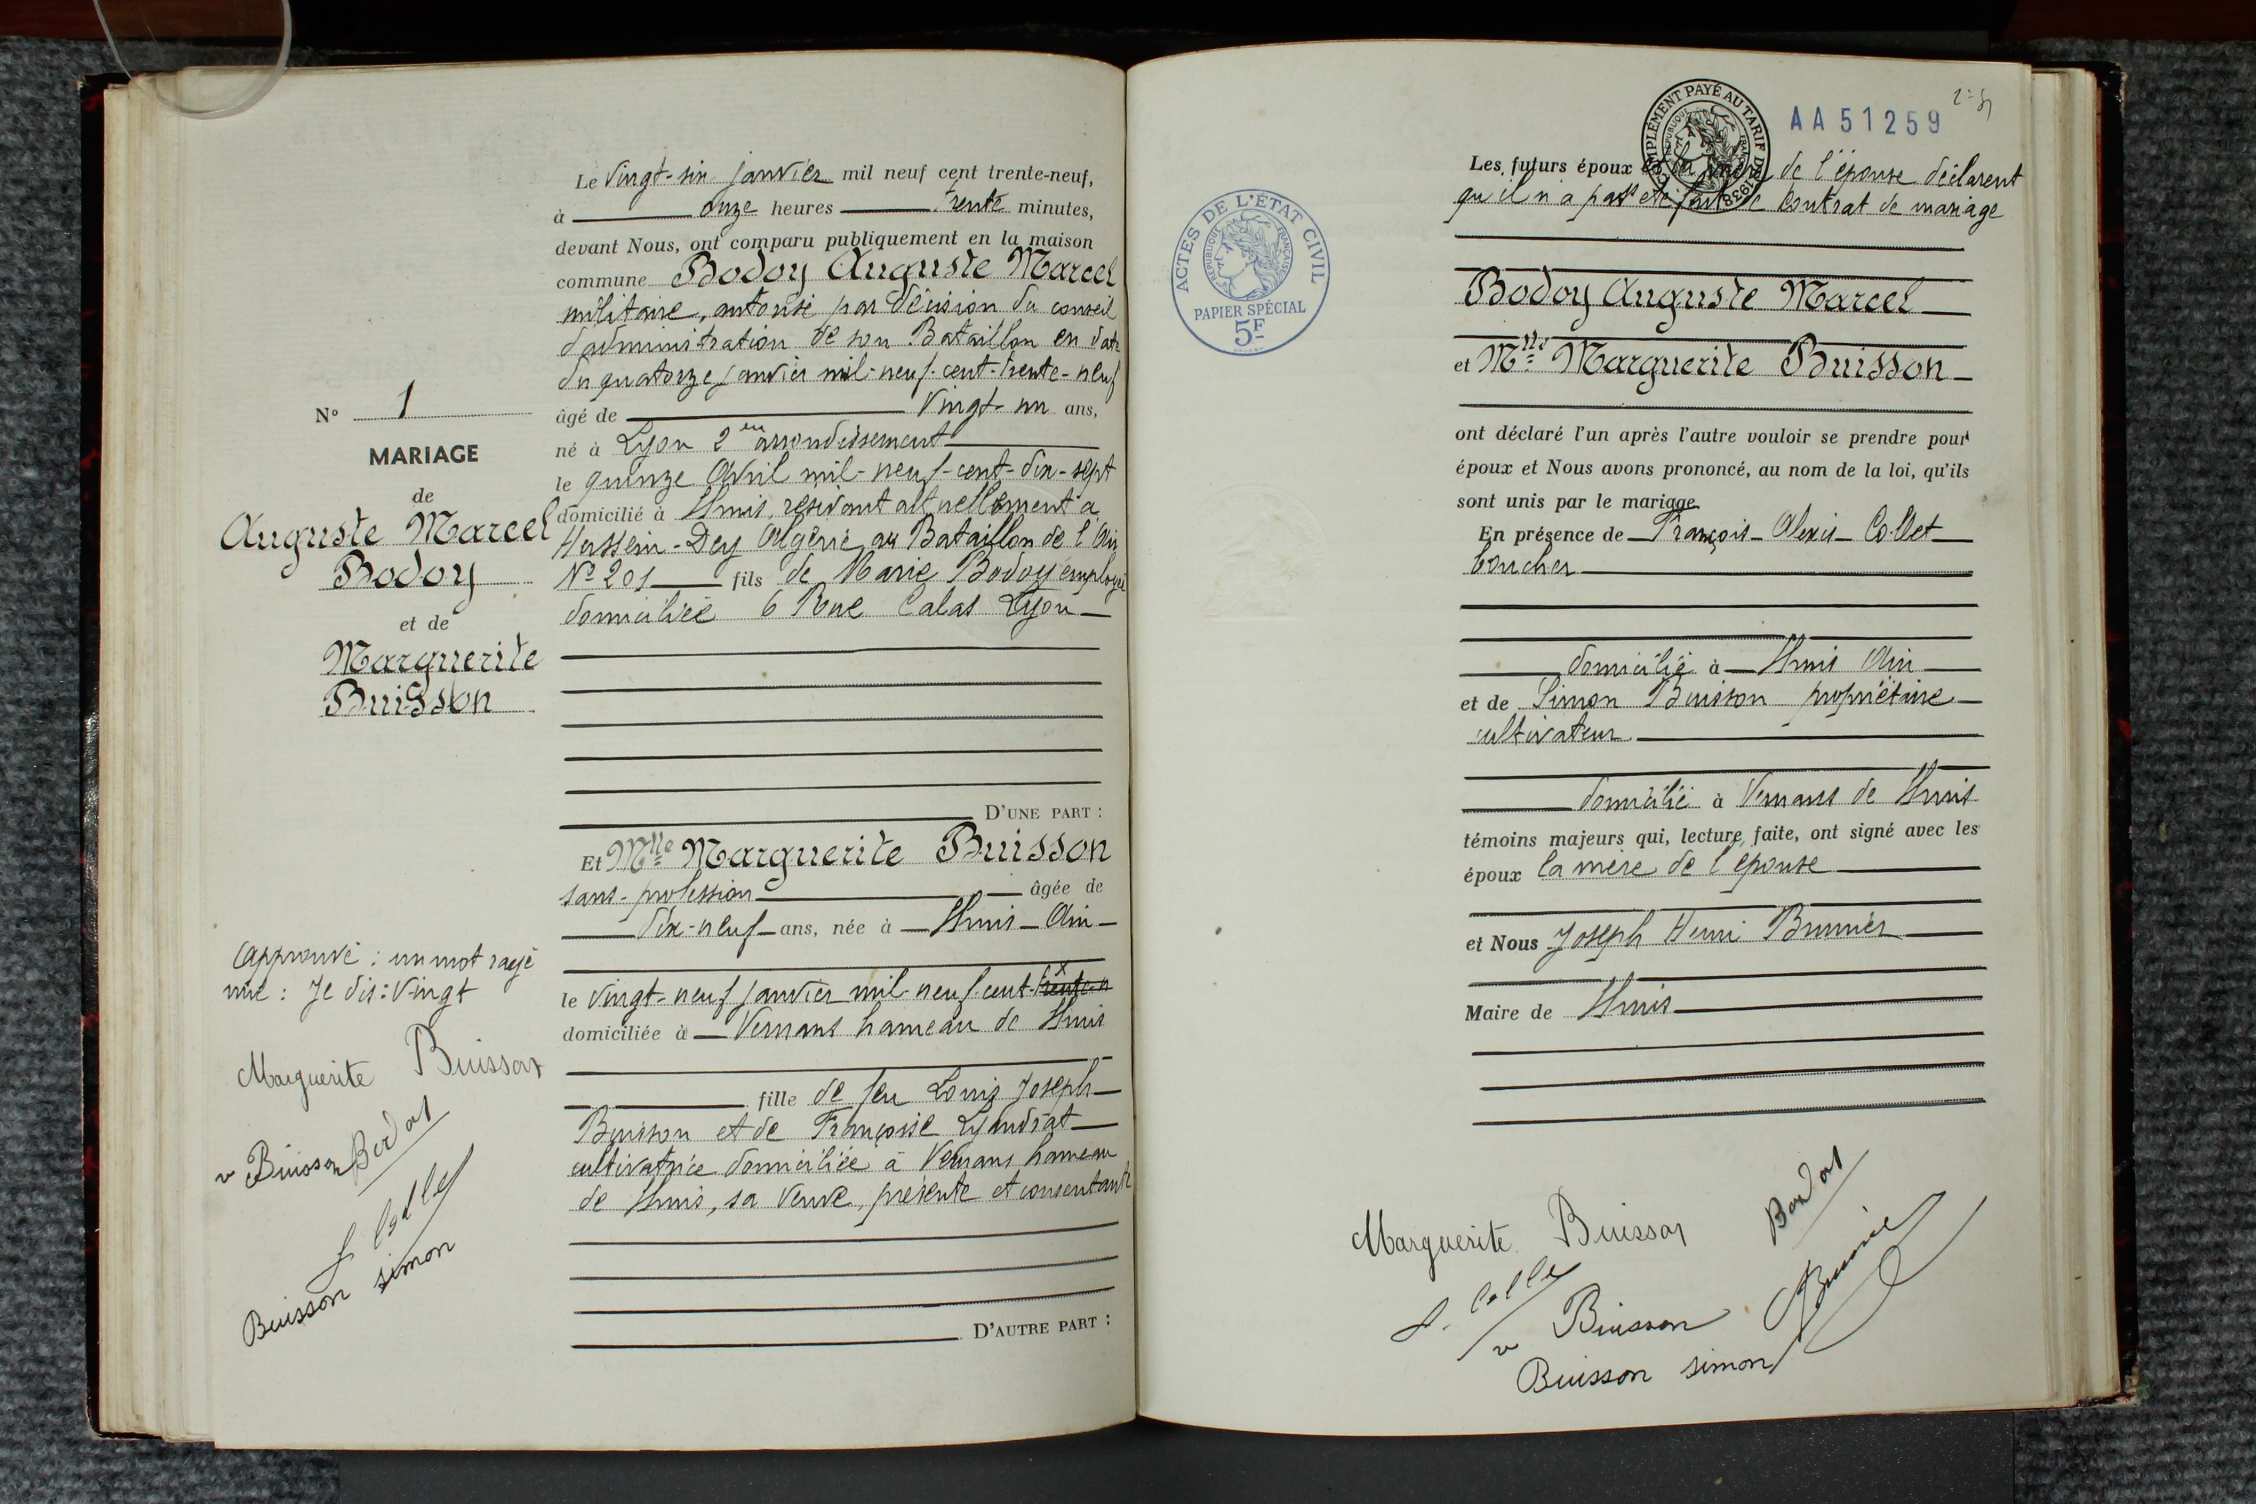 N° 1
MARIAGE
de
Auguste Marcel
Bodoy
et de
Marguerite
Buisson
Approuvé : un mot rayé
nul : Je dis : vingt
Marguerite Buisson
v Buisson Bodoy
Buisson simon
Le vingt-six janvier mil neuf cent trente-neuf,
à onze heures trente minutes,
devant Nous, ont comparu publiquement en la maison
commune Bodoy Auguste Marcel
militaire, autorisé par décision du conseil
d'administration de son Bataillon en date
du quatorze janvier mil-neuf-cent-trente-neuf
âgé de vingt-un ans,
né à Lyon 2 em arrondissement
le quinze Avril mil-neuf-cent-dix-sept
domicilié à Izieu, résidant actuellement à
Hussein-Dey Algérie au Bataillon de l'Air
N° 201 fils de Marie Bodoy employée
domiciliée 6 Rue Calas Lyon
D'UNE PART :
Et Mlle Marguerite Buisson
sans-profession âgée de
dix-neuf ans, née à Ain
le vingt-neuf janvier mil-neuf-cent-trente-n
domiciliée à hameau de
fille de feu Louis Joseph
Buisson et de Françoise Lyaudrat
cultivatrice domiciliée à hameau
de sa veuve, présente et consentante
D'AUTRE PART :
ACTES DE L'ÉTAT CIVIL
RÉPUBLIQUE FRANÇAISE
PAPIER SPÉCIAL
5F
COMPLÉMENT PAYÉ AU TARIF DE 1938
RÉPUBLIQUE FRANÇAISE
AA51259
Les futurs époux et la mère de l'épouse déclarent
qu'il n'a pas été fait de contrat de mariage
Bodoy Auguste Marcel
et Mlle Marguerite Buisson
ont déclaré l'un après l'autre vouloir se prendre pour
époux et Nous avons prononcé, au nom de la loi, qu'ils
sont unis par le mariage
En présence de François Alexis Collet
boucher
domicilié à Ain
et de Simon Buisson propriétaire
cultivateur
domicilié à de
témoins majeurs qui, lecture faite, ont signé avec les
époux la mère de l'épouse
et Nous Joseph Henri Brunier
Maire de
Marguerite Buisson Bodoy
v Buisson Brunier
Buisson simon